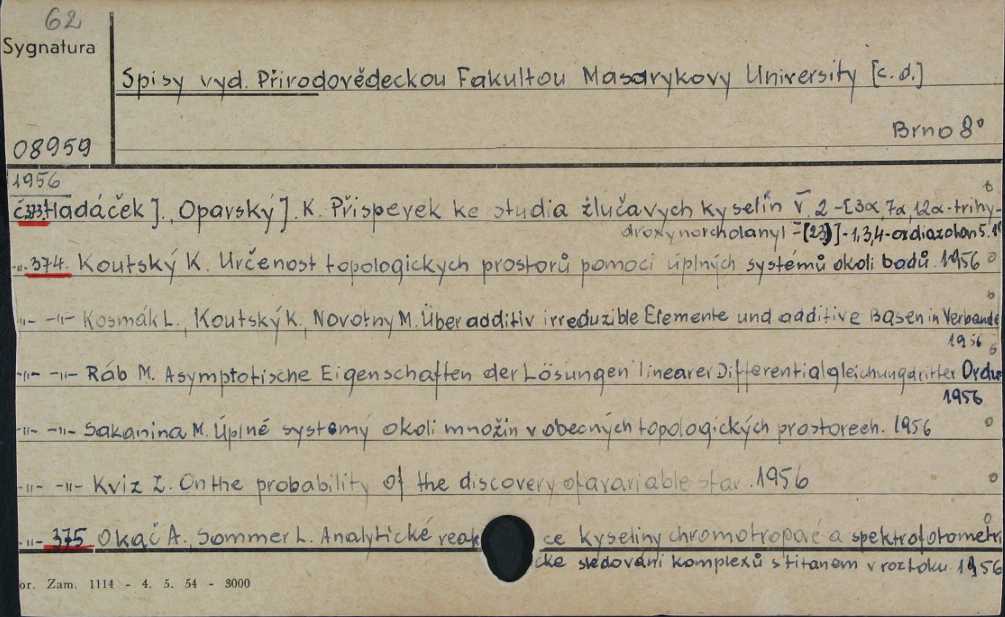 62
Sygnatura
Spisy vyd. Přirodovědeckou Fakultou Masarykovy University [c.d.]
08959
Brno 8°
1956
č.373. Hadáček J., Oparský J. K. Přispevek ke studia žlučavych kyselin V. 2-[3α, 7α, 12α-trihy-
droxynorcholanyl-(23)]-1,3,4-oxdiazolon 5. 19
-„- 374. Koutský K. Určenost topologickych prostorů pomoci úplných systémů okoli bodů. 1956
-„- -„- Kosmák L., Koutský K., Novotny M. Über additiv irreduzible Elemente und additive Basen in Verbande
1956
-„- -„- Ráb M. Asymptotische Eigenschaften der Lösungen linearer Differentialgleichung dritter Ordn
1956
-„- -„- Sakanina M. Úplné systemy okoli množin v obecných topologických prostorech. 1956
-„- -„- Kviz Z. On the probability of the discovery of a variable star. 1956
-„- 375 Okáč A., Sommer L. Analytické reak ce kyseliny chromotropové a spektrofotometri
cké sledováni komplexů s titanem v roztoku. 1956
or. Zam. 1114 - 4. 5. 54 - 3000